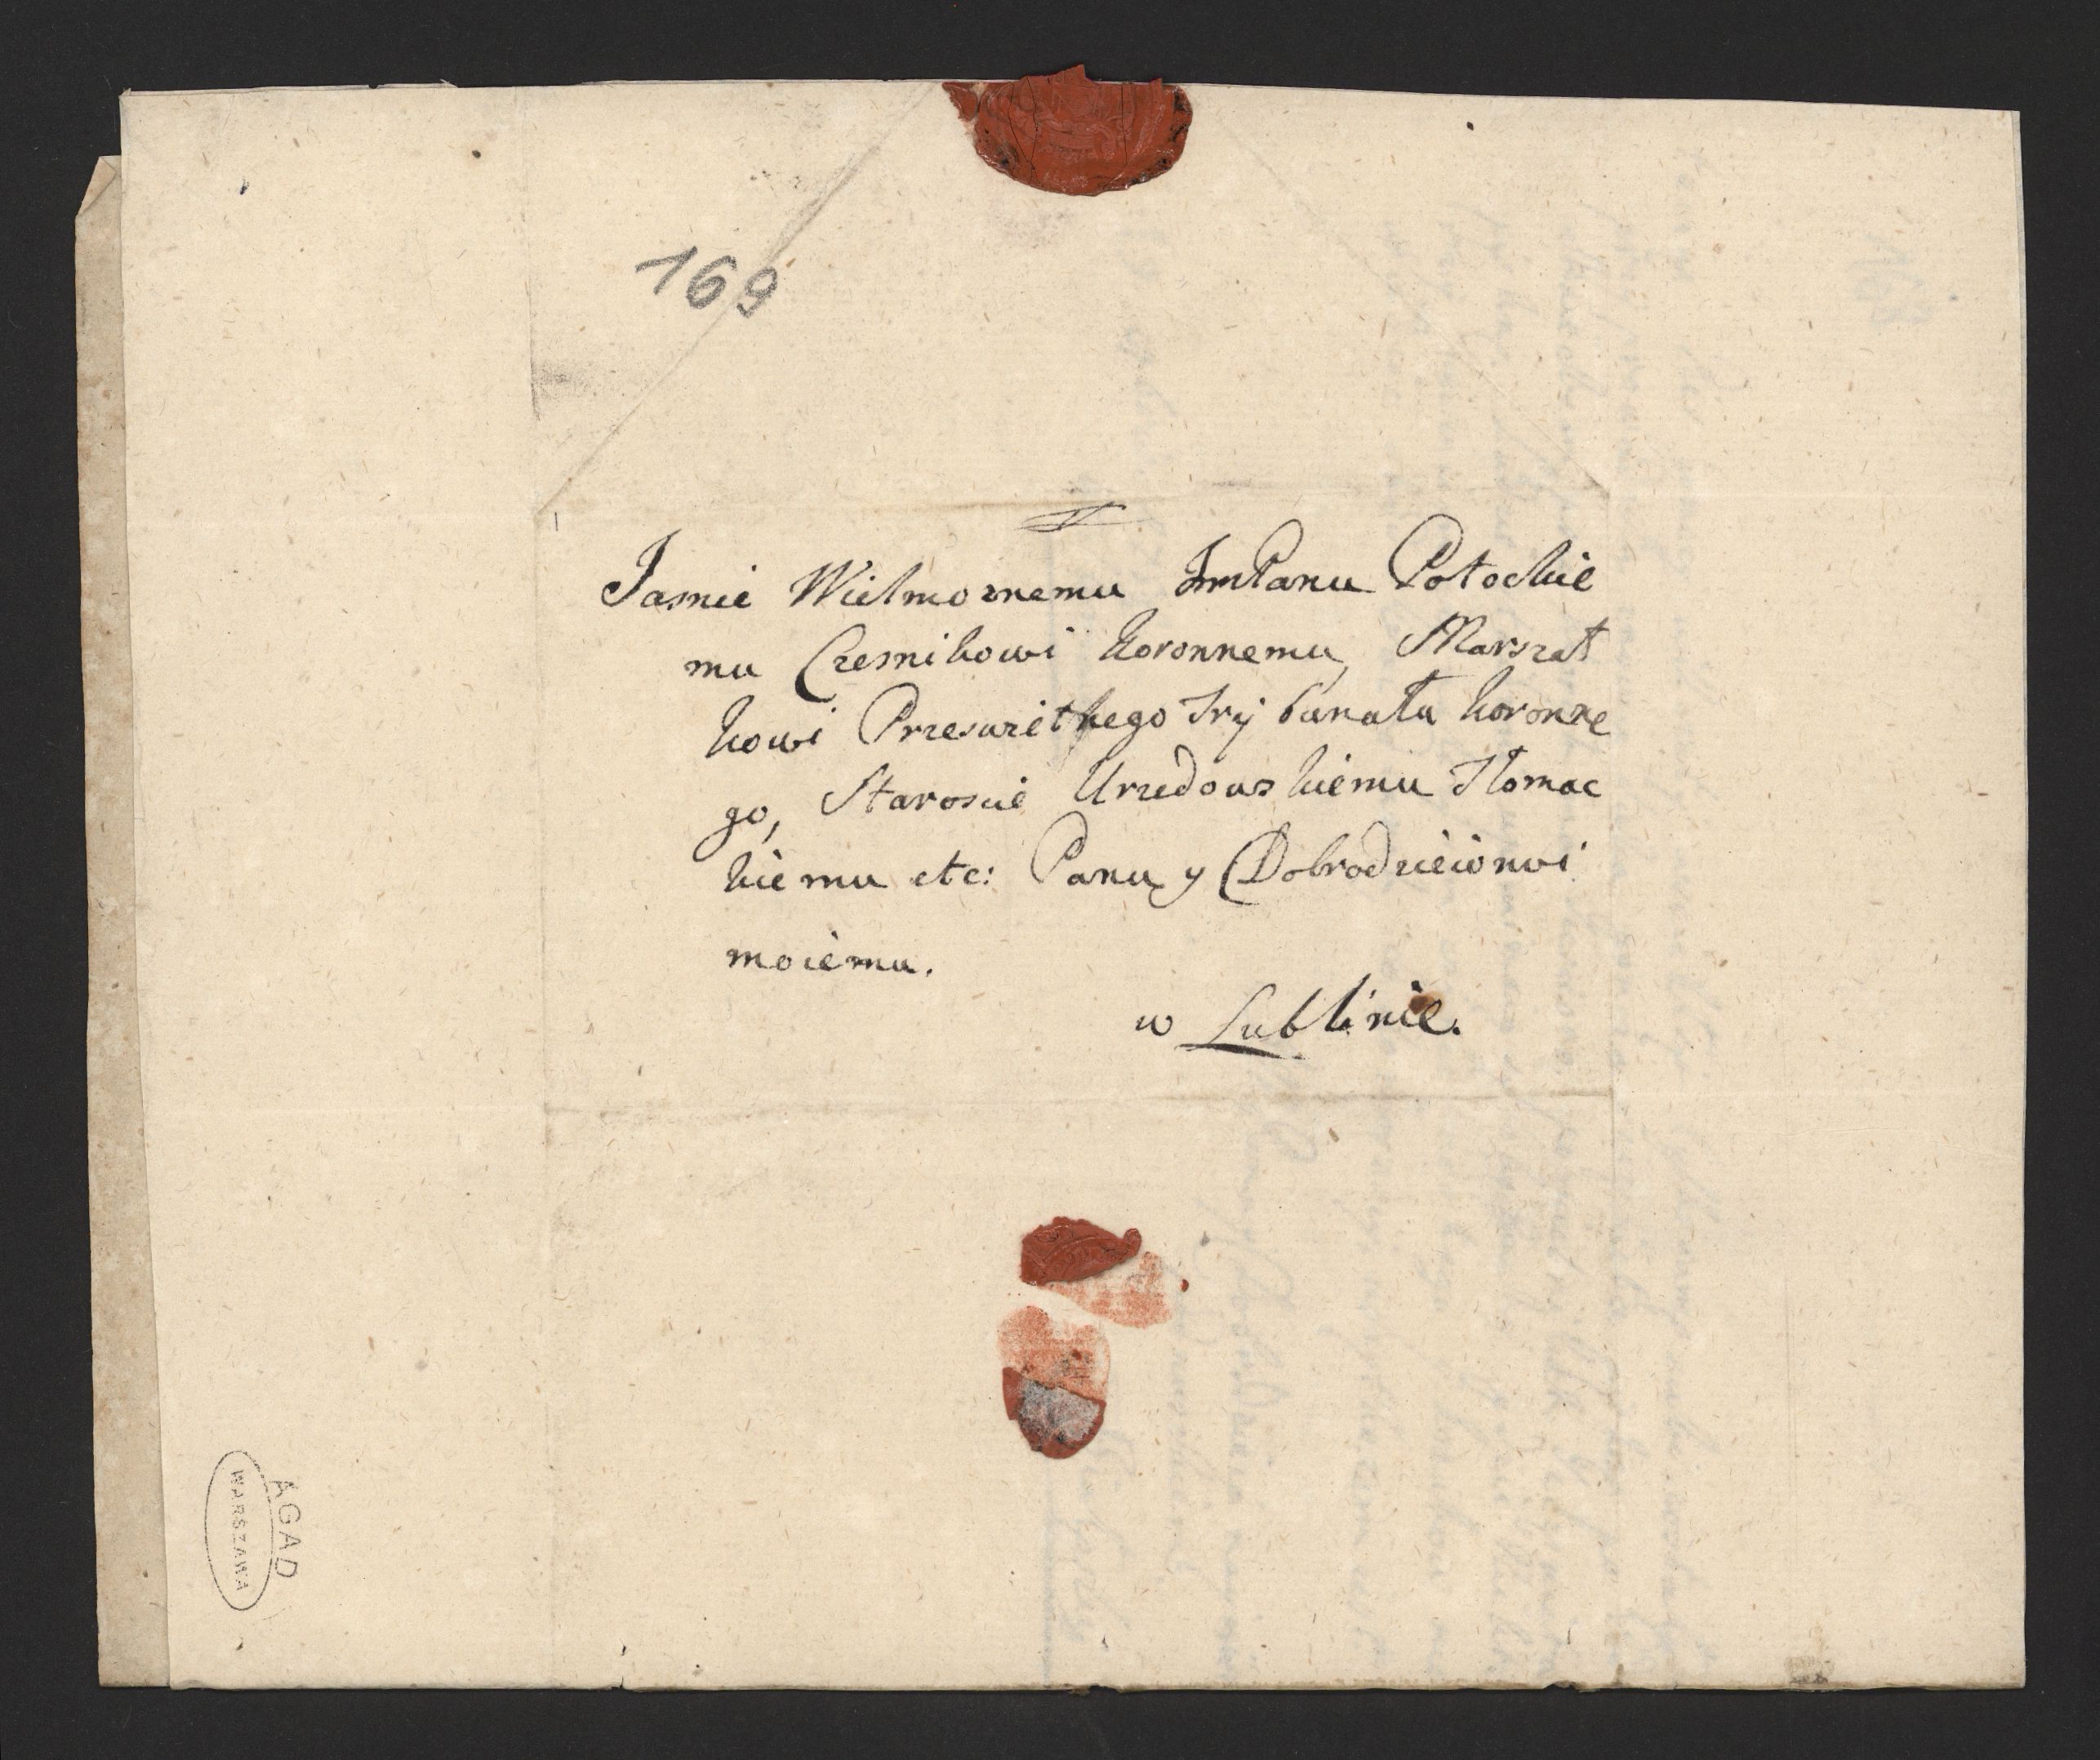 169
Jasnie Wielmoznemu ImPanu Potockie
mu Czesnikowi koronnemu, Marszał
kowi Przeswietnego Trybunału koronne
go, Staroscie Urzedowskiemu Tłomac
kiemu etc: Panu y Dobrodzieiowi
moiemu.
w Lublinie.
AGAD
WARSZAWA